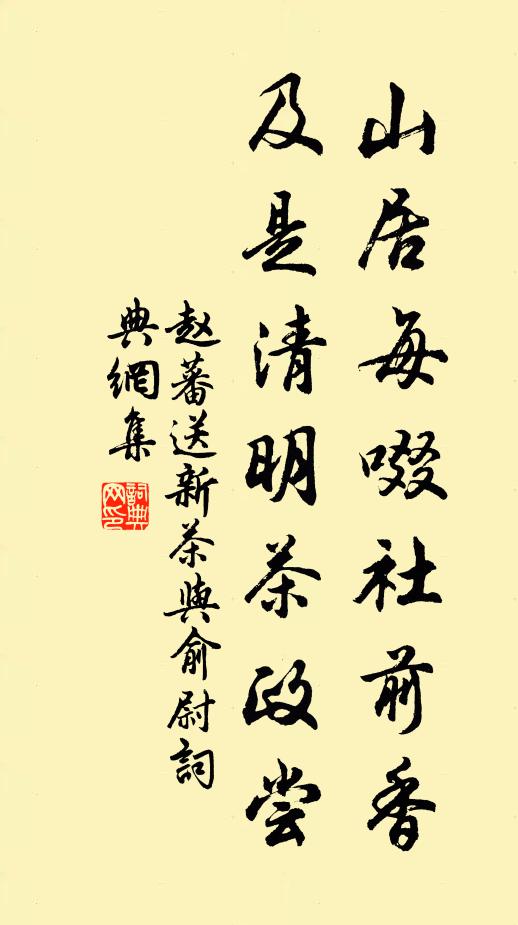 山居每啜社前香
及是清明茶政尝
赵蕃送新茶與俞尉詞
典網集
詞典
网印